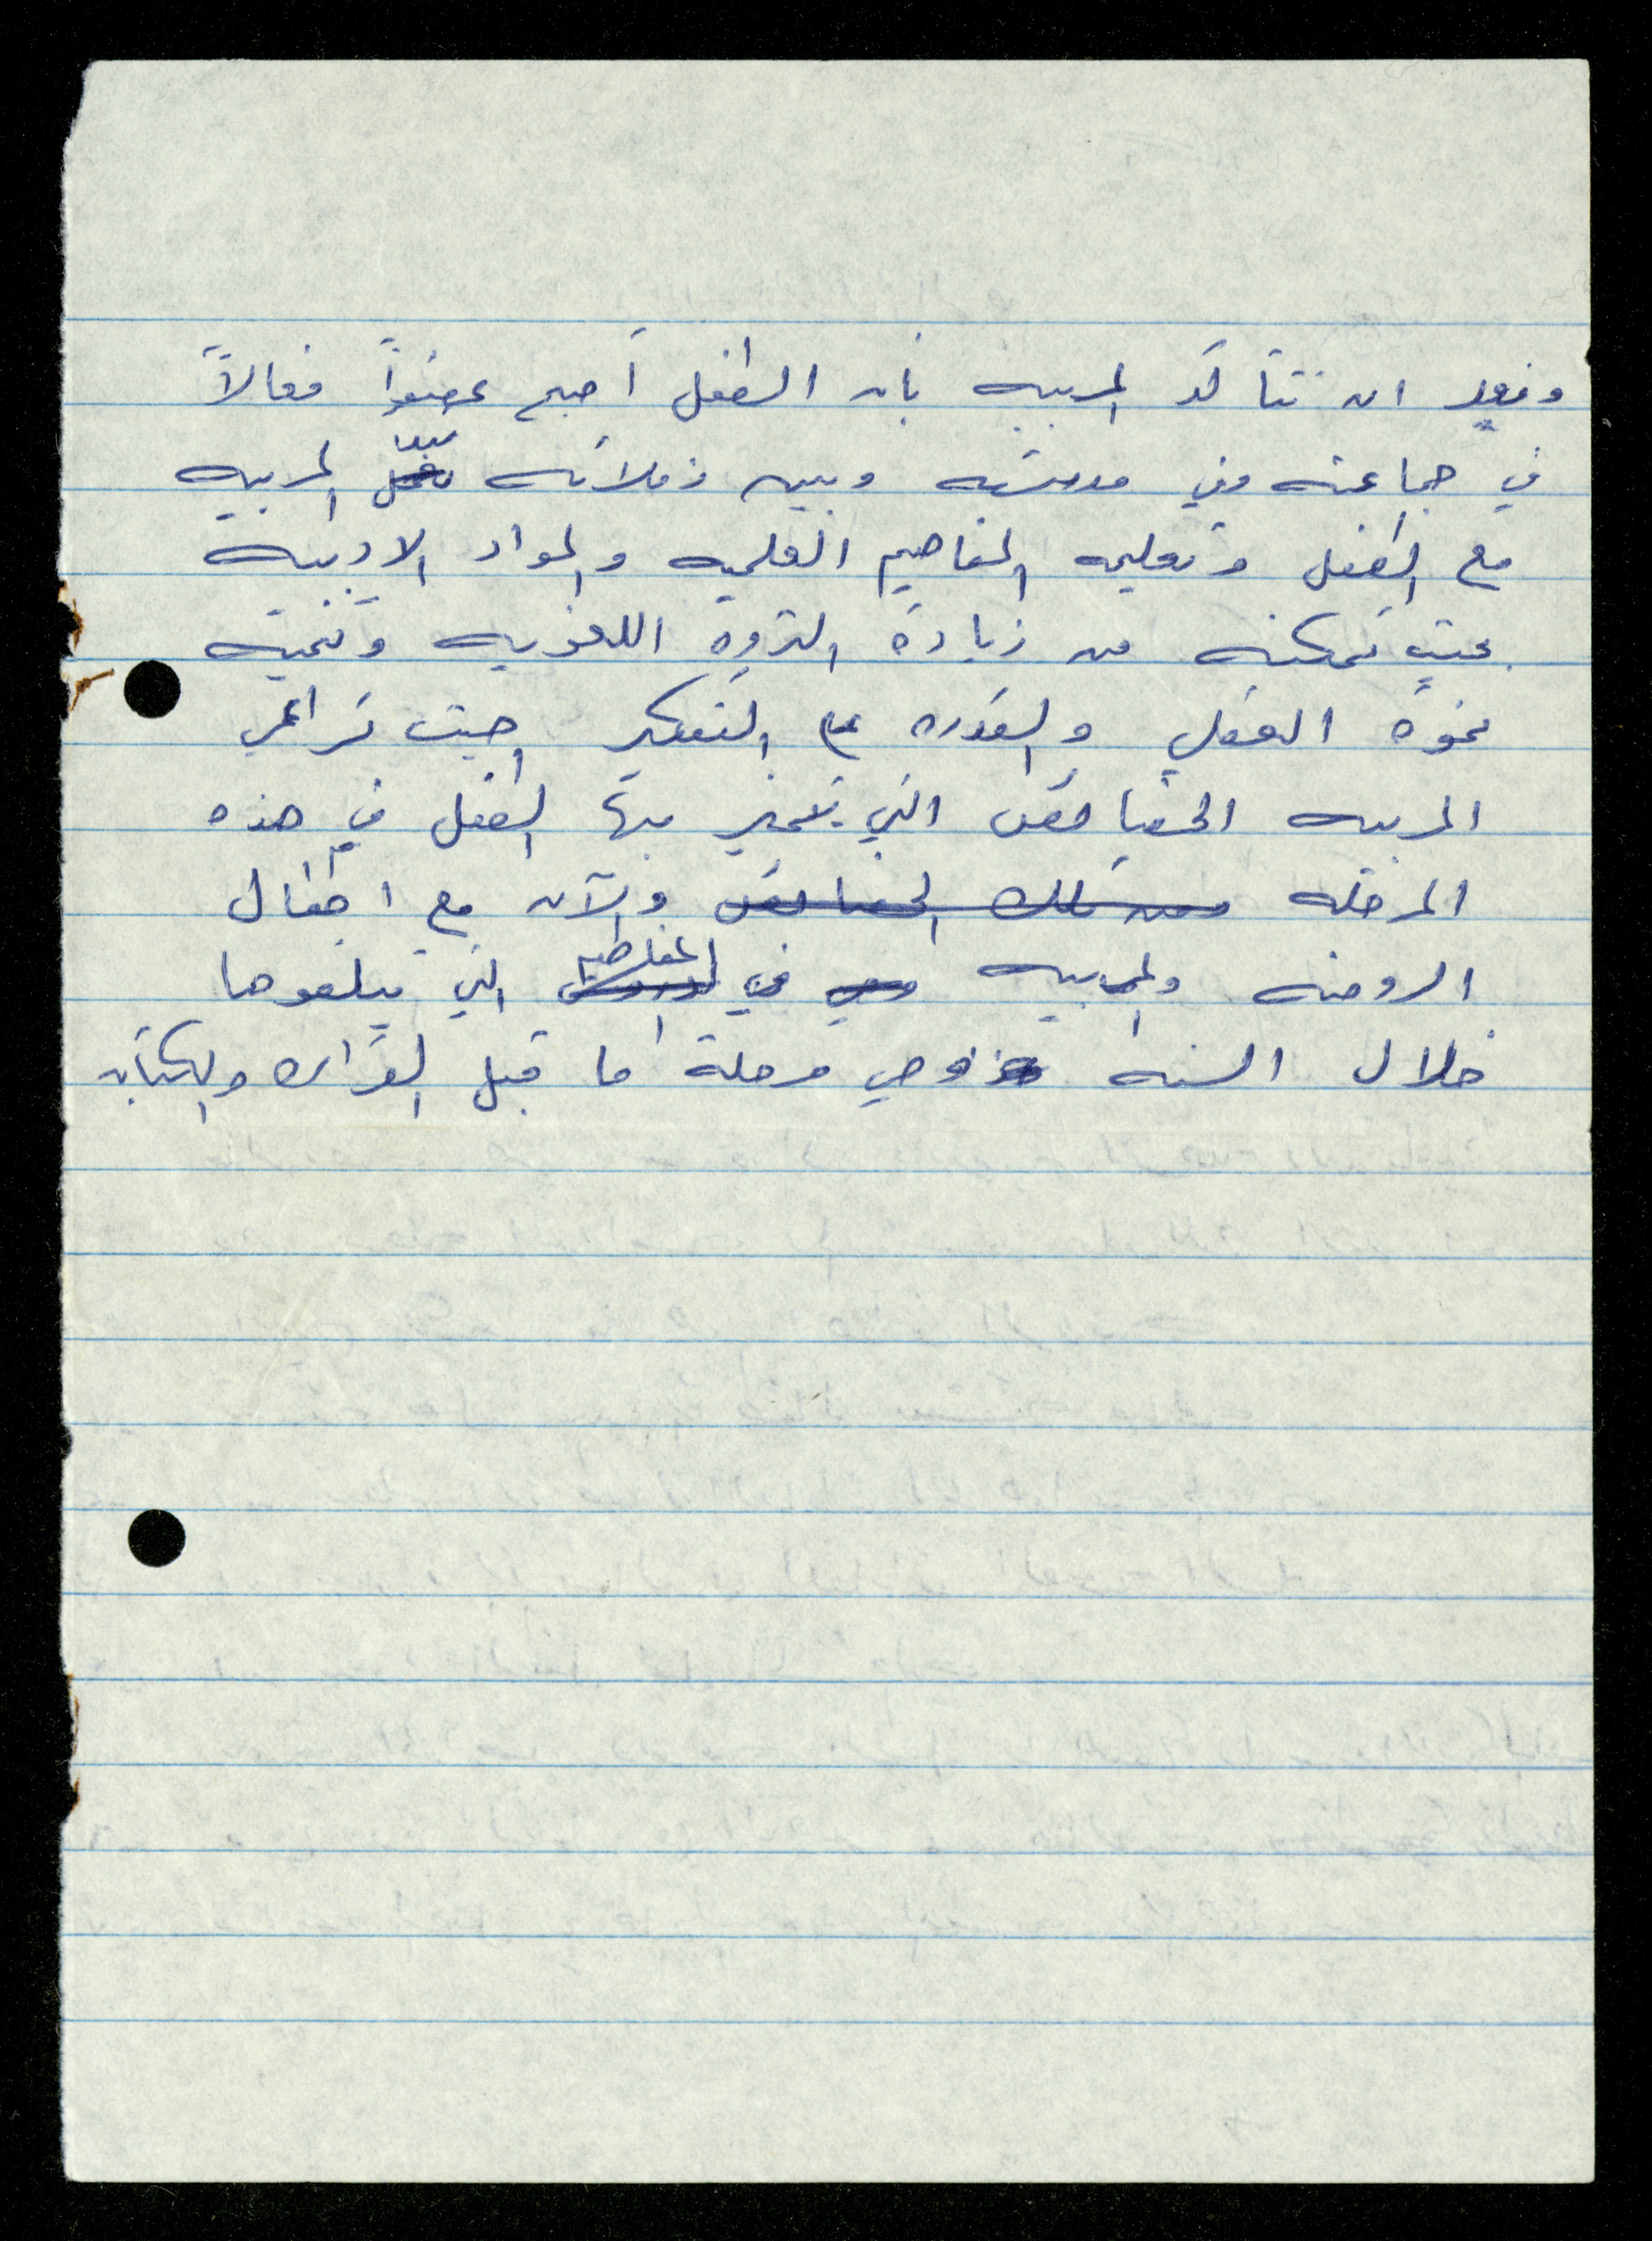 وبعد ان تتأكد المربيه بان الطفل أصبح عضواً فعالاً
في جماعته وفي مدرسته وبين زملائه تبدأ المربيه
مع الطفل وتعليمه المفاهيم العلميه والمواد الادبيه
بحيث تمكنه من زيادة الثروه اللغويه وتنمية
نموه العقلي والقدره على التفكير بحيث تراعي
المربيه الخصائص التي يتميز بها الطفل في هذه
المرحله ومن تلك الخصائص والآن مع اطفال
الروضه والمربيه في المفاهيم التي تبلغوها
خلال السنه وهي مرحلة ما قبل القراءه والكتابه